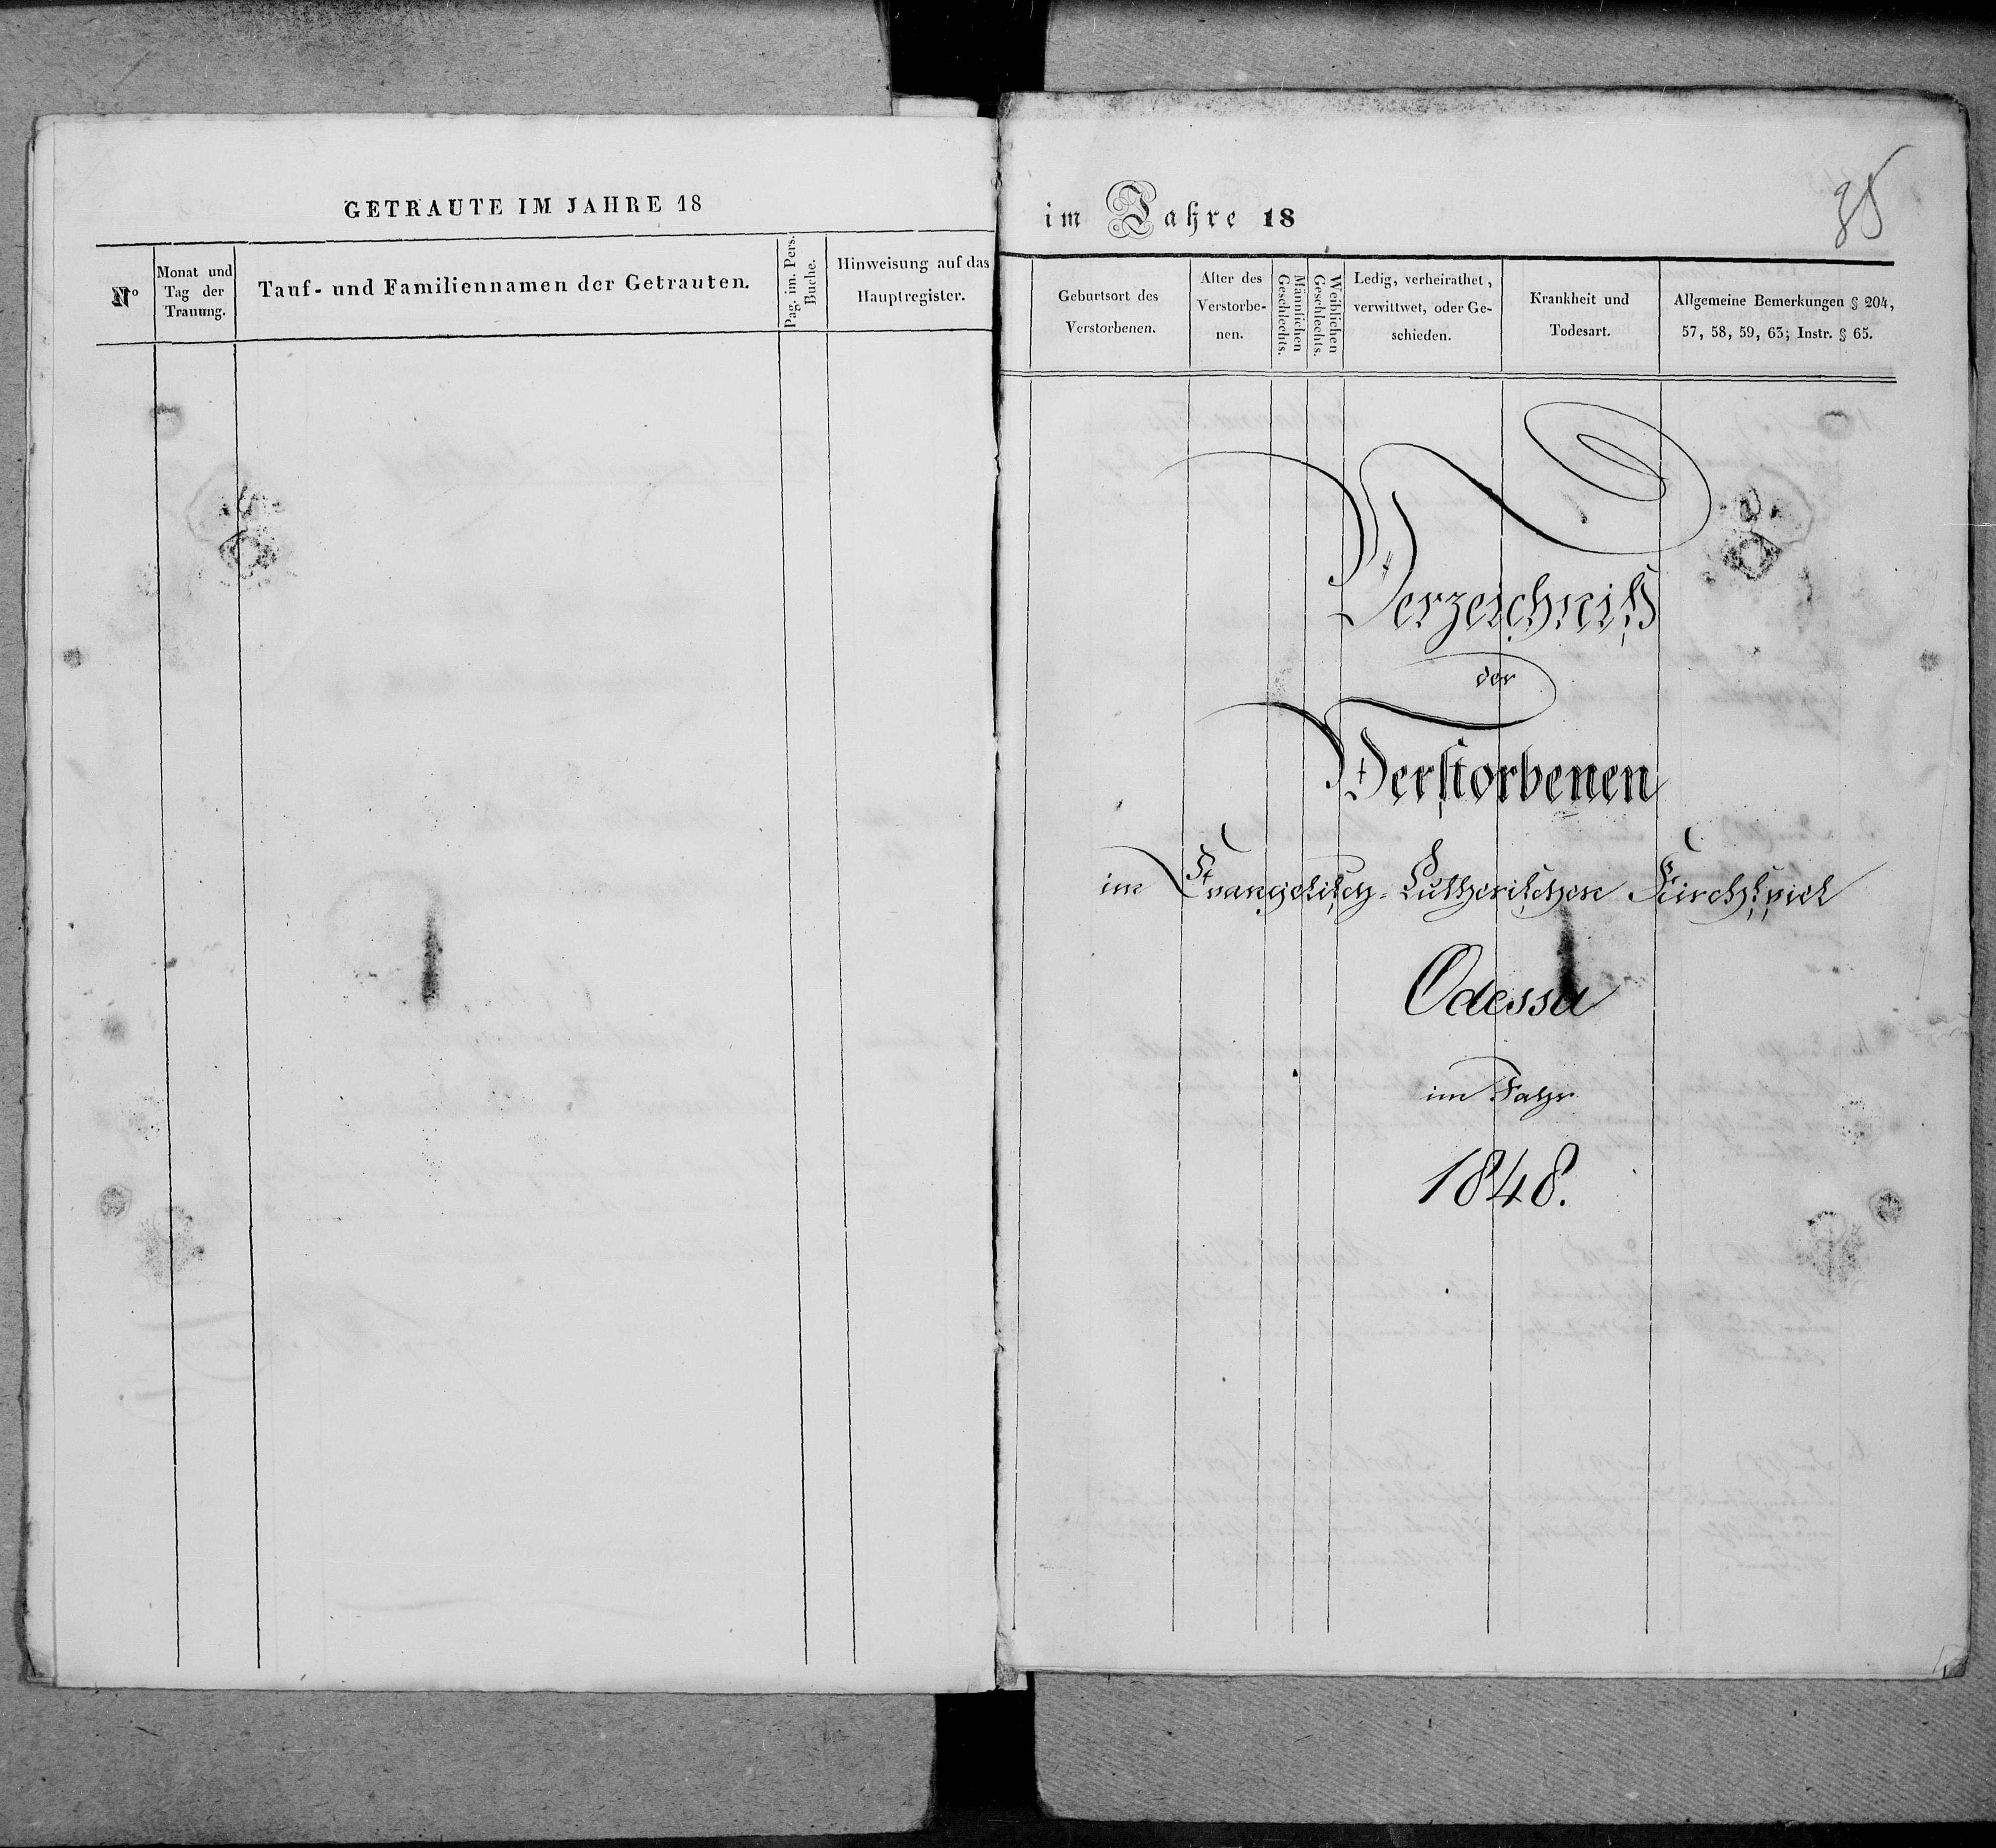 GETRAUTE IM JAHRE 18
No
Monat und
Tag der
Trauung.
Tauf- und Familiennamen der Getrauten.
Pag. im. Pers.
Buche.
Hinweisung auf das
Hauptregister.
im Jahre 18
Geburtsort des
Verstorbenen.
Alter des
Verstorbe-
nen.
Männlichen
Geschlechts.
Weiblichen
Geschlechts.
Ledig, verheirathet,
verwittwet, oder Ge-
schieden.
Krankheit und
Todesart.
Allgemeine Bemerkungen § 204,
57, 58, 59, 63; Instr. § 65.
Verzeichniß
der
Verstorbenen
im Evangelisch-Lutherischen Kirchspiel
Odessa
im Jahr
1848.